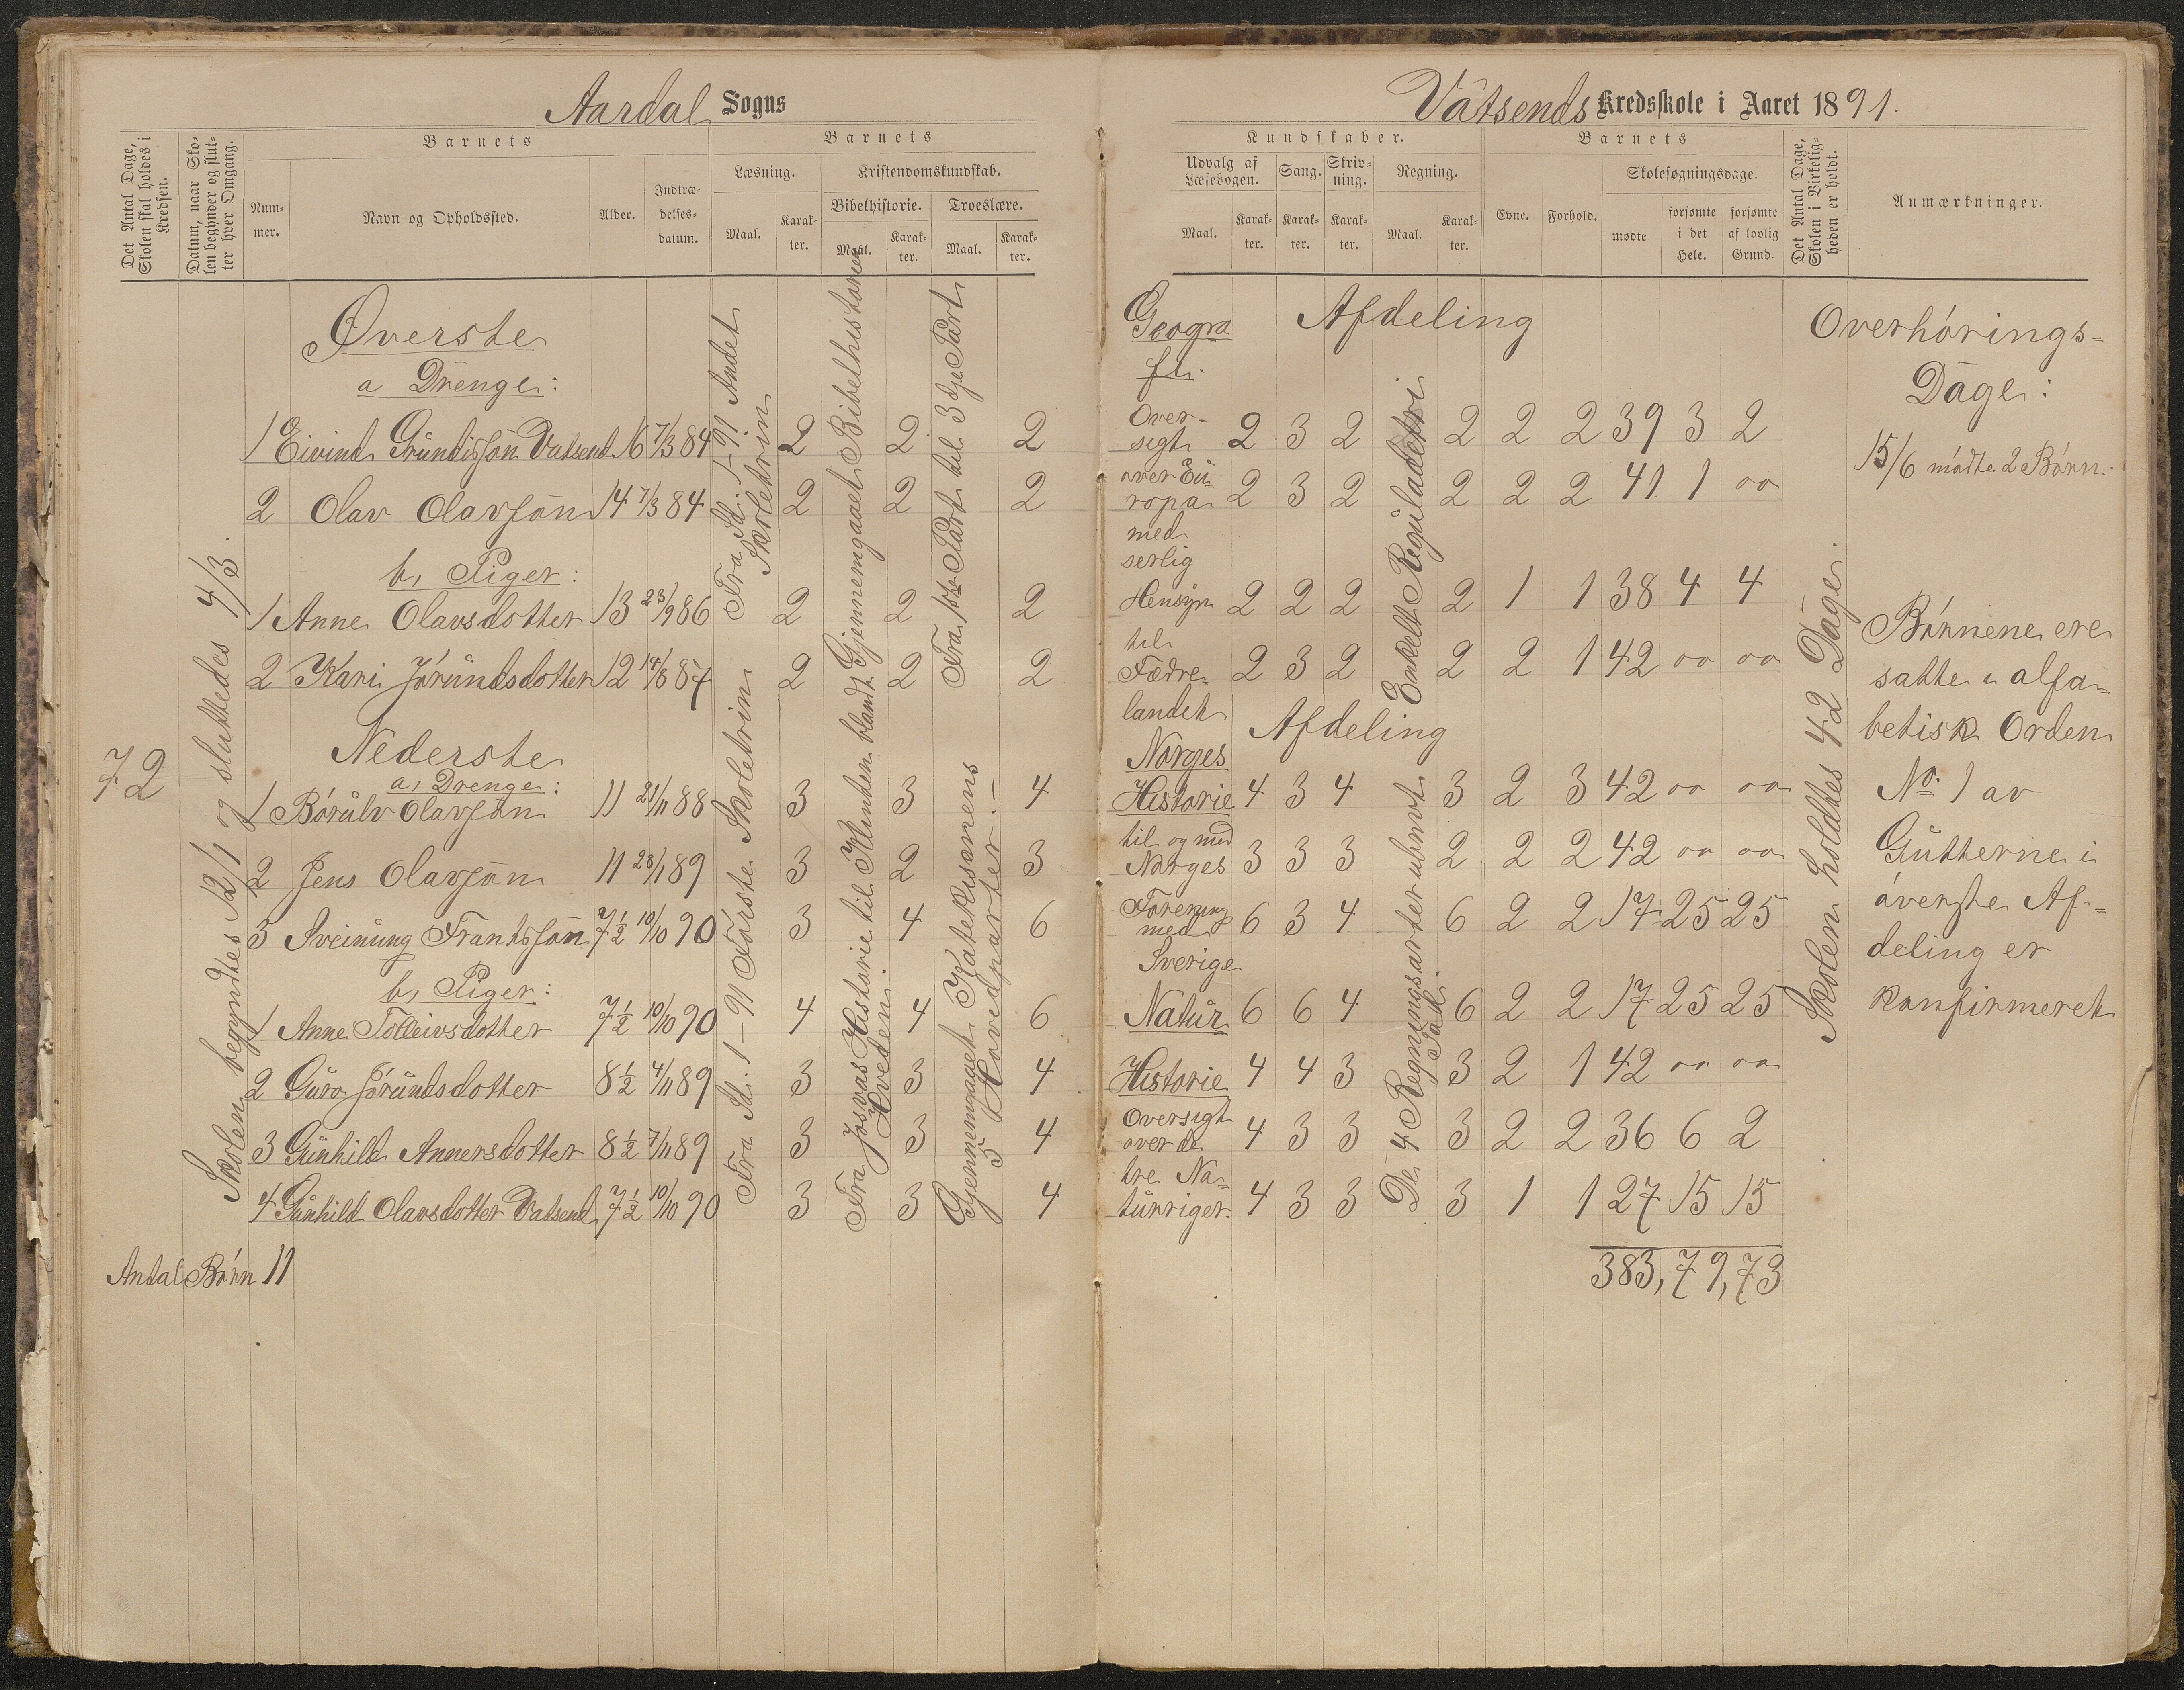 Aardal Sogns
Vatsends Kredsskole i Aaret 1891.
Det Antal Dage, Skolen skal holdes i Kredsen.
Datum, naar Skolen begynder og slutter hver Omgang.
Barnets
Nummer.
Navn og Opholdssted.
Alder.
Indtrædelsesdatum.
Barnets
Læsning.
Maal.
Karakter.
Kristendomskundskab.
Bibelhistorie.
Maal.
Karakter.
Troeslære.
Maal.
Karakter.
Kundskaber.
Udvalg af Læsebogen.
Maal.
Karakter.
Sang.
Karakter.
Skrivning.
Karakter.
Regning.
Maal.
Karakter.
Barnets
Evne.
Forhold.
Skolesøgningsdage.
mødte
forsømte i det Hele.
forsømte af lovlig Grund.
Det Antal Dage, Skolen i Virkeligheden er holdt.
Anmærkninger.
72
Skolen begyndtes 12/1 og sluttedes 4/3.
Øverste Afdeling
a Drenge:
1 Eivind Grundisson Vatsend 16 7/3 84 2 2 2 2 3 2 2 2 2 39 3 2
2 Olav Olavsøn 14 7/3 84 2 2 2 2 3 2 2 2 2 41 1 oo
b, Piger:
1 Anne Olavsdotter 13 23/9 86 2 2 2 2 2 2 2 1 1 38 4 4
2 Kari Jórundsdotter 12 14/8 87 2 2 2 2 3 2 2 2 1 42 oo oo
Nederste Afdeling
a, Drenge:
1 Bórulv Olavsøn 11 21/11 88 3 3 4 4 3 4 3 2 3 42 oo oo
2 Jens Olavsøn 11 28/1 89 3 2 3 3 3 3 2 2 2 42 oo oo
3 Sveinung Frantsson 7½ 10/10 90 3 4 6 6 3 4 6 2 2 17 25 25
b, Piger:
1 Anne Tolleivsdotter 7½ 10/10 90 4 4 6 6 6 4 6 2 2 17 25 25
2 Guro Jórundsdotter 8½ 4/11 89 3 3 4 4 4 3 3 2 1 42 oo oo
3 Gunhild Annersdotter 8½ 7/11 89 3 3 4 4 3 3 3 2 2 36 6 2
4 Gunhild Olavsdotter Vatsend 7½ 10/10 90 3 3 4 4 3 3 3 1 1 27 15 15
Antal Børn 11
383, 79, 73
Fra Sd. 1-91 Andet
Skoletrin
Gjennemgaaet Bibelhistorien
Fra 1ste Part til 3dje Part
Fra Sd. 1-91 Første Skoletrin
Fra Josvas Historie til Klinten blandt
Hveden
Gjennemgaaet Katekismens
5 Hovedparter.
Geogra
fi.
Over-
sigt
over Eu-
ropa
med
serlig
Hensyn
til
Fædre-
landet
Norges
Historie
til og med
Norges
Forening
med
Sverige
Natur
Historie
Oversigt
over de
tre Na-
turriger.
Enkelt Reguladetri
De 4 Regningsarter ubnvt
Tad.
Skolen holdtes 42 Dage.
Overhórings-
Dage:
15/6 mødte 2 Børn.
Børnene ere
satte i alfa-
betisk Orden
No. 1 av
Gutterne i
øverste Af-
deling er
konfirmeret